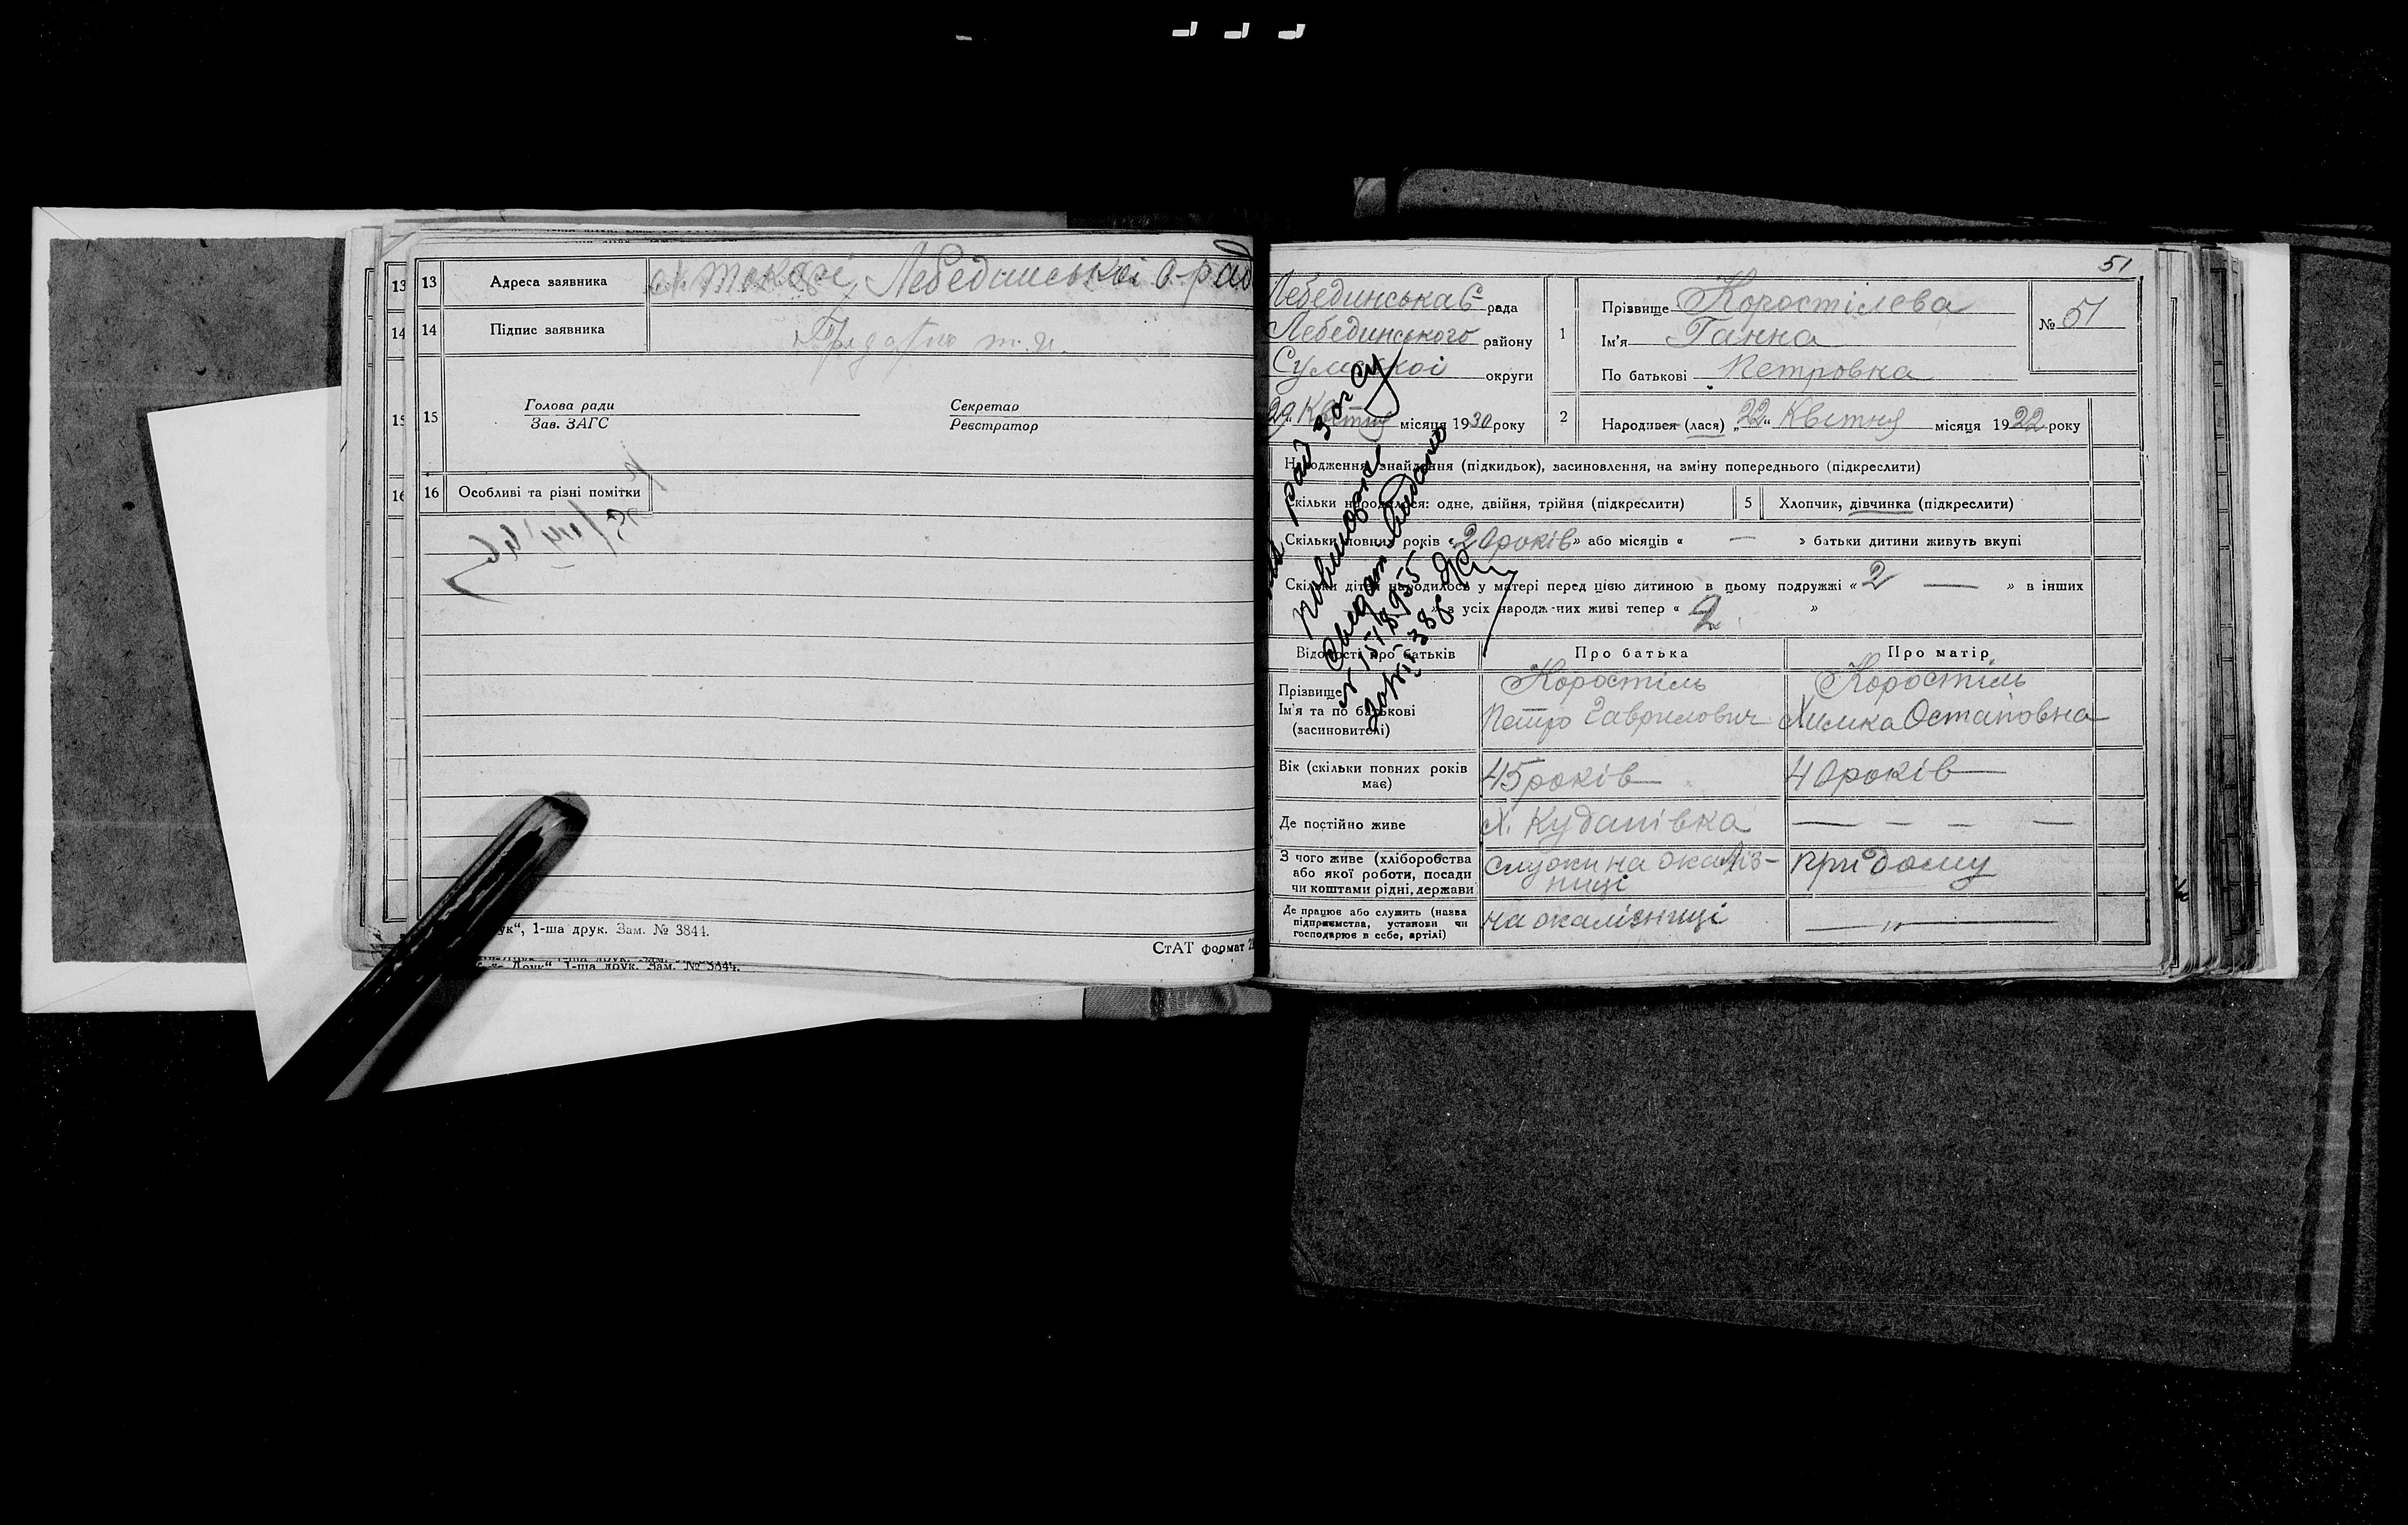 13 Адреса заявника Лебединської с-рад
14 Підпис заявника
15 Голова ради
Зав. ЗАГС
Секретар
Реєстратор
16 Особливі та різні помітки
ук“, 1-ша друк. Зам. № 3844.
СтАТ формат
51
Лебединська с- рада
Лебединського району
Сумської округи
29 Квітня місяця 1930 року
1 Прізвище Коростілева
Ім'я Ганна
По батькові Петровна
№ 51
2 Народився (лася) „22“ Квітня місяця 1922 року
Народження, знайдення (підкидьок), засиновлення, на зміну попереднього (підкреслити)
Скільки народилося: одне, двійня, трійня (підкреслити) 5 Хлопчик, дівчинка (підкреслити)
Скільки повних років «20років» або місяців « — » батьки дитини живуть вкупі
Скільки дітей народилось у матері перед цією дитиною в цьому подружжі «2 —» в інших
» з усіх народжених живі тепер « 2 »
повторне
№ 151 8.955
Відомості про батьків Про батька Про матір
Прізвище Коростіль Коростіль
Ім'я та по батькові Петро Гаврилович Химка Остаповна
(засиновителі)
Вік (скільки повних років має) 45 років 40 років
Де постійно живе х. Кудапівка — — — —
З чого живе (хліборобства або якої роботи, посади чи коштами рідні, держави) придому
Де працює або служить (назва підприємства, установи чи господарює в себе, артілі) — „ —